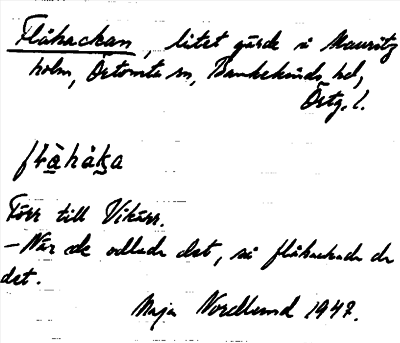 Flåhackan, litet gärde i Mauritz
holm, Östomta sn, Bankekinds hd,
Östg. l.
flåhåka
Förr till Vikärr.
– När de odlade det, så flåhackade de
det.
Maja Nordlund 1947.